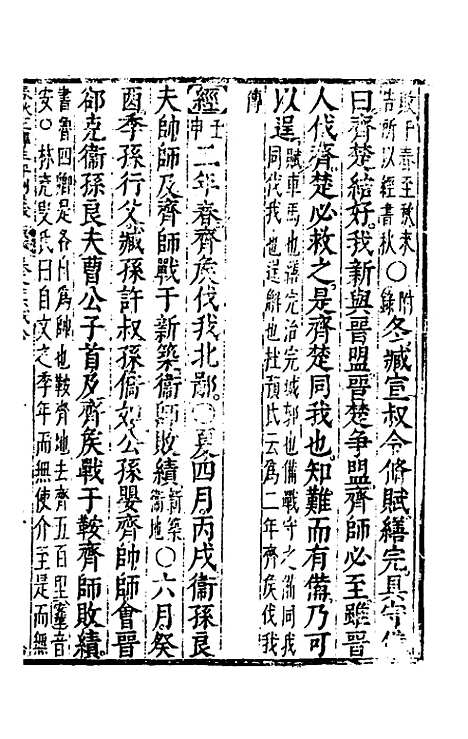 敗于春至秋來告所以經書秋○附錄冬臧宣叔令脩賦繕完具守備
曰齊楚結好我新與晉盟晉楚爭盟齊師必至雖晉
人伐齊楚必救之是齊楚同我也知難而有備乃可
以逞賦車馬也繕完治完城郭也備戰守之 同我同伐我也逞解也杜預氏云為二年齊侯伐我
傳
經壬申二年春齊侯伐我北鄙○夏四月丙戌衞孫良
夫帥師及齊師戰于新築衞師敗績新築衞地○六月癸
酉季孫行父臧孫許叔孫僑如公孫嬰齊帥師會晉
郤克衞孫良夫曹公子首及齊侯戰于鞍齊師敗績
書魯四卿是各自為帥也鞍齊地去齊五百里 音安○林 叟氏曰自文之季年而無使介至是而無